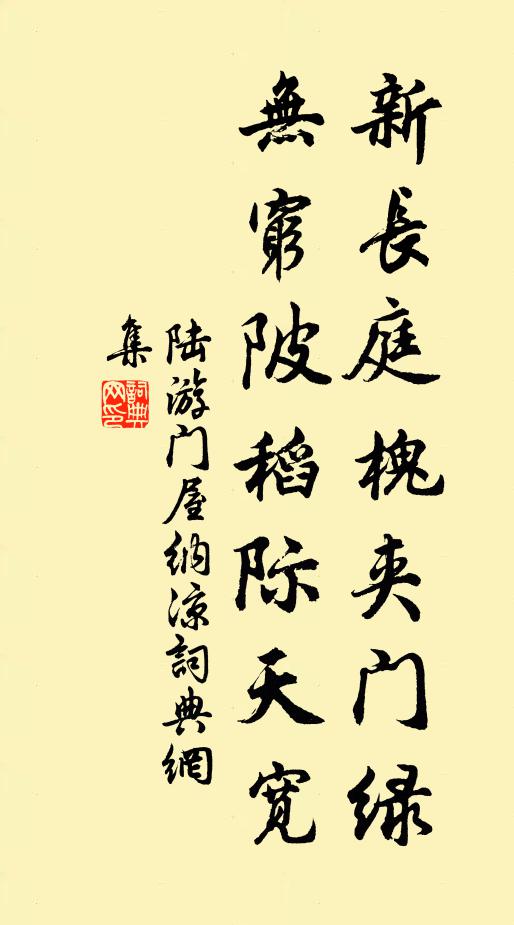 新長庭槐夹门绿
無窮陂稻际天寬
陆游门屋纳凉詞典網
集
詞典网印